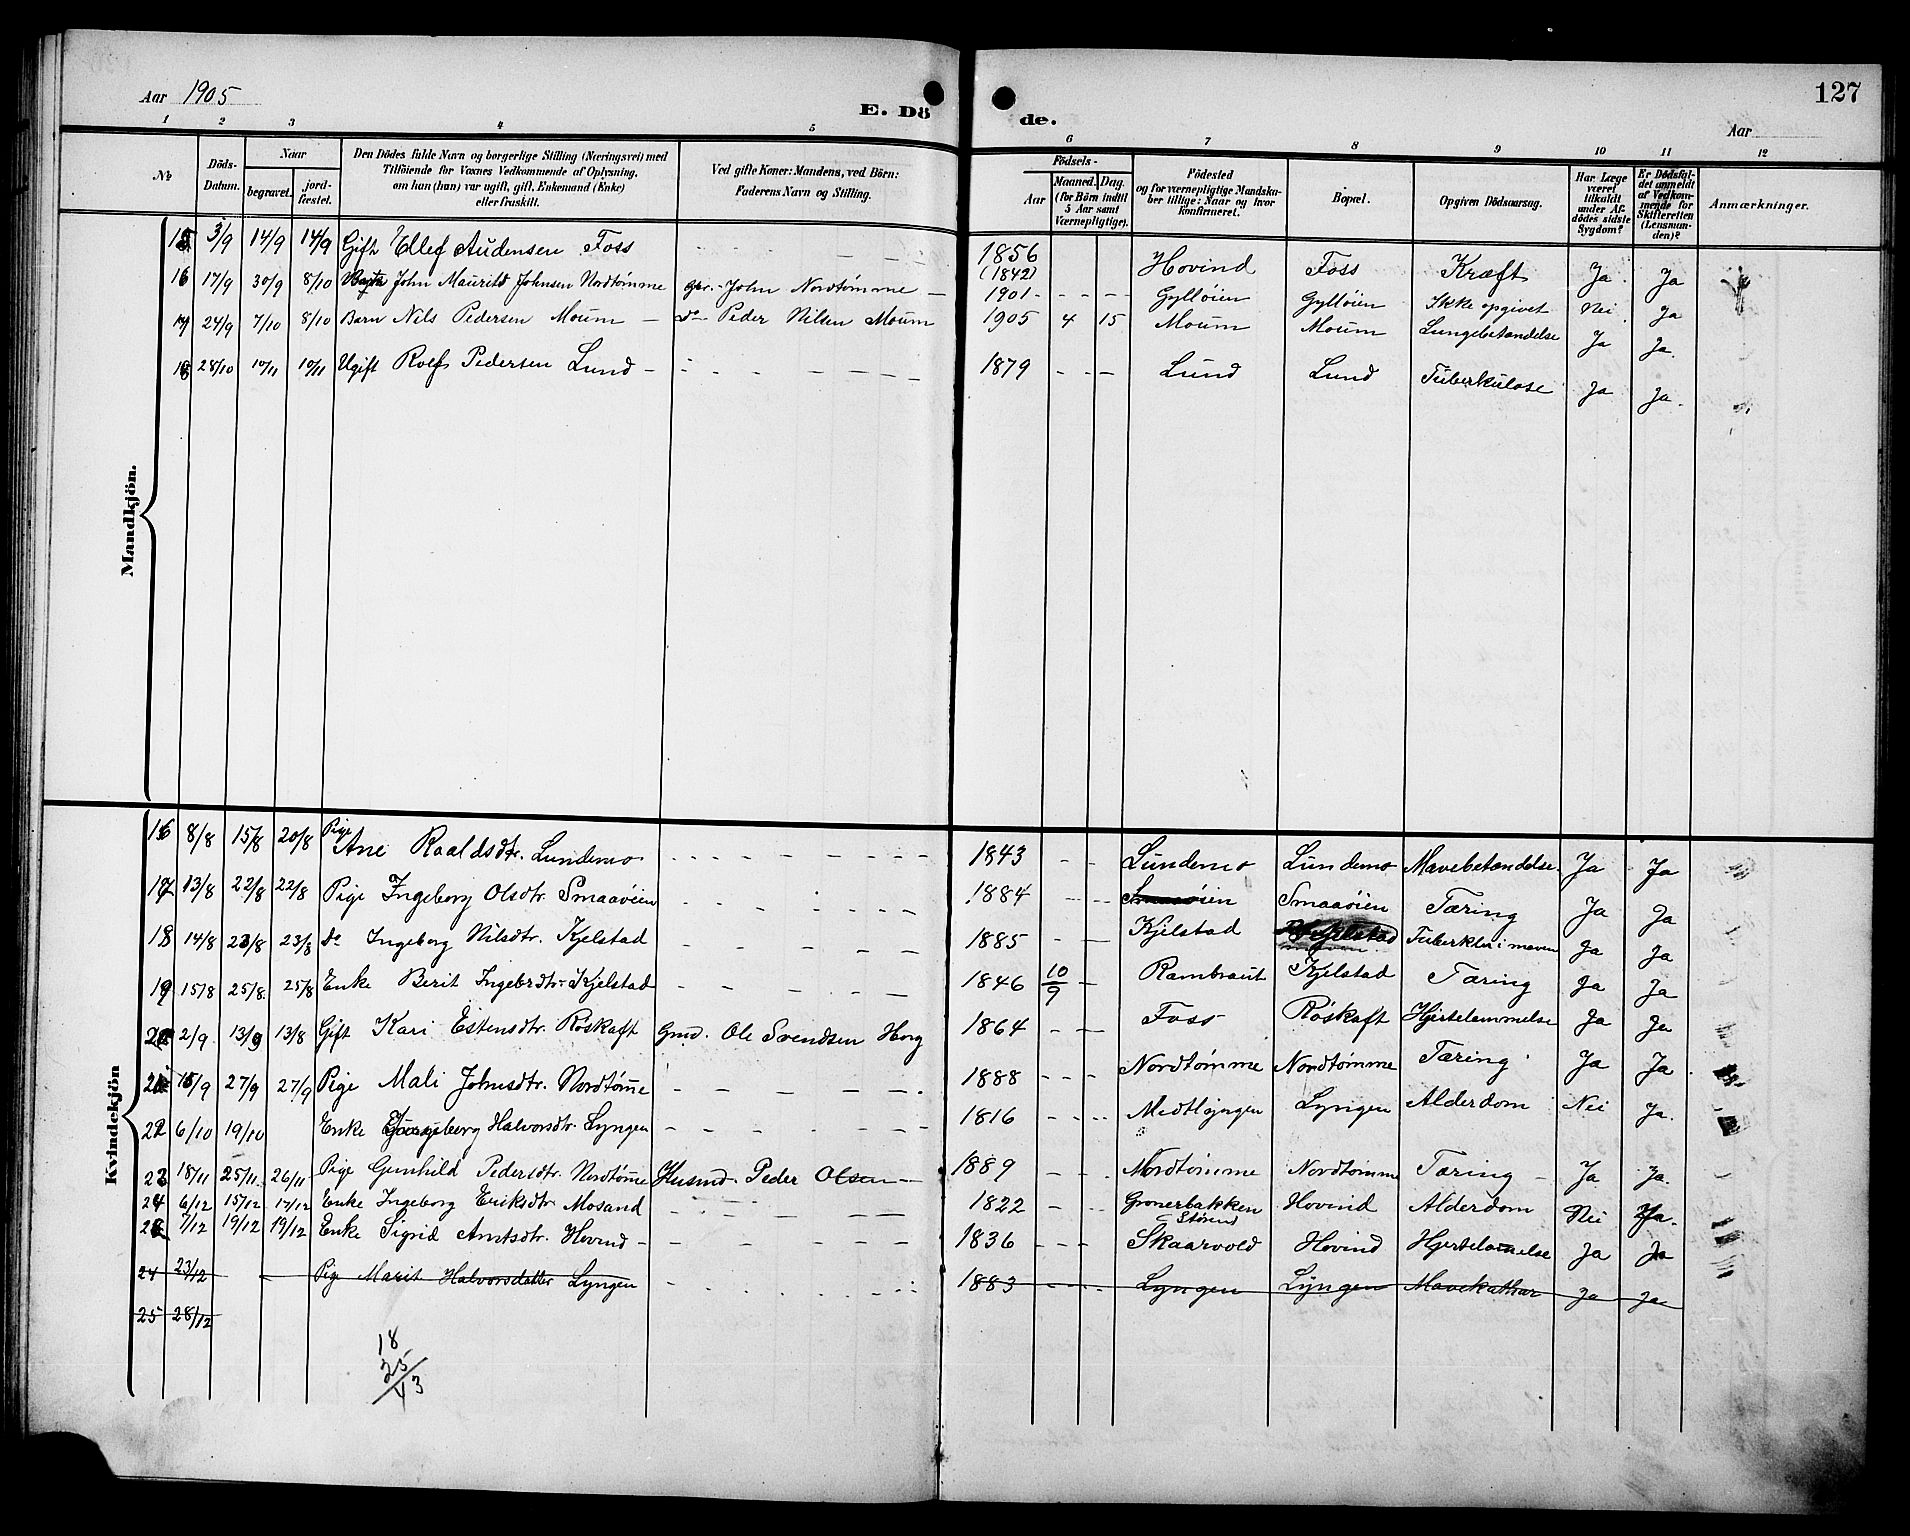 Aar 1905
E. Dö de.
127
Aar
1 2 3 4 5 6 7 8 9 10 11 12
No Döds-Datum. Naar begravet. jord-fæstet. Den Dödes fulde Navn og borgerlige Stilling (Næringsvei) med Tilföiende for Voxnes Vedkommende af Oplysning, om han (hun) var ugift, gift, Enkemand (Enke) eller fraskilt. Ved gifte Koner: Mandens, ved Börn: Faderens Navn og Stilling. Födsels- Aar Maaned. Dag. (for Børn indtil 5 Aar samt Værnepligtige). Födested og for værnepligtige Mandska-ber tillige: Naar og hvor konfirmeret. Bopæl. Opgiven Dödsaarsag. Har Læge været tilkaldt under Af-dödes sidste Sygdom? Er Dödsfal-det anmeldt af Vedkom-mende for Skifteretten (Lensman-den)? Anmærkninger.
Mandkjön.
15 3/9 14/9 14/9 Gift Ellef Audensen Foss 1856 (1842) Hovind Foss Kræft Ja Ja
16 17/9 30/9 8/10 John Mauritz Johnsen Nordtømme John Nordtømme 1901 Gylløien Gylløien Ikke opgivet Nei Ja
17 24/9 7/10 8/10 Barn Nils Pedersen Moum do Peder Nilsen Moum 1905 4 15 Moum Moum Lungebetændelse Ja Ja.
18 28/10 10/11 10/11 Ugift Rolf Pedersen Lund 1879 Lund Lund Tuberkulose Ja Ja.
Kvindekjön
16 8/8 15/8 20/8 Pige Ane Roaldsdtr. Lundemo 1843 Lundemo Lundemo Mavebetændelse. Ja Ja
17 13/8 22/8 22/8 Pige Ingeborg Olsdtr. Smaaøien 1884 Smaaøien Smaaøien Tæring Ja Ja
18 14/8 23/8 23/8 do Ingeborg Nilsdtr. Kjelstad 1885 Kjelstad Kjelstad Tuberkler i maven Ja Ja
19 15/8 25/8 25/8 Enke Berit Ingebrdtr. Kjelstad 1846 10/9 Rambraut Kjelstad Tæring Ja Ja
20 2/9 13/9 13/8 Gift Kari Estensdtr. Røskaft Gmd. Ole Svendsen Horg 1864 Foss Røskaft Hjertelammelse Ja Ja
21 15/9 27/9 27/9 Pige Mali Johnsdtr. Nordtømme 1888 Nordtømme Nordtømme Tæring Ja Ja
22 6/10 19/10 Enke Ingeborg Halvorsdtr. Lyngen 1816 Midtlyngen Lyngen Alderdom Nei Ja.
23 18/11 25/11 26/11 Pige Gunhild Pedersdtr. Nordtømme Husmd. Peder Olsen 1889 Nordtømme Nordtømme Tæring Ja Ja.
24 6/12 15/12 17/12 Enke Ingeborg Eriksdtr. Mosand 1822 Gronerbakken Støren Hovind Alderdom Nei Ja.
25 7/12 19/12 19/12 Enke Sigrid Arntsdtr. Hovind 1836 Skaarvold Hovind Hjertelammelse Ja Ja
24 23/12 Pige Marit Halvorsdatter Lyngen 1883 Lyngen Lyngen Mavekathar Ja Ja
25 28/12
18
25
43